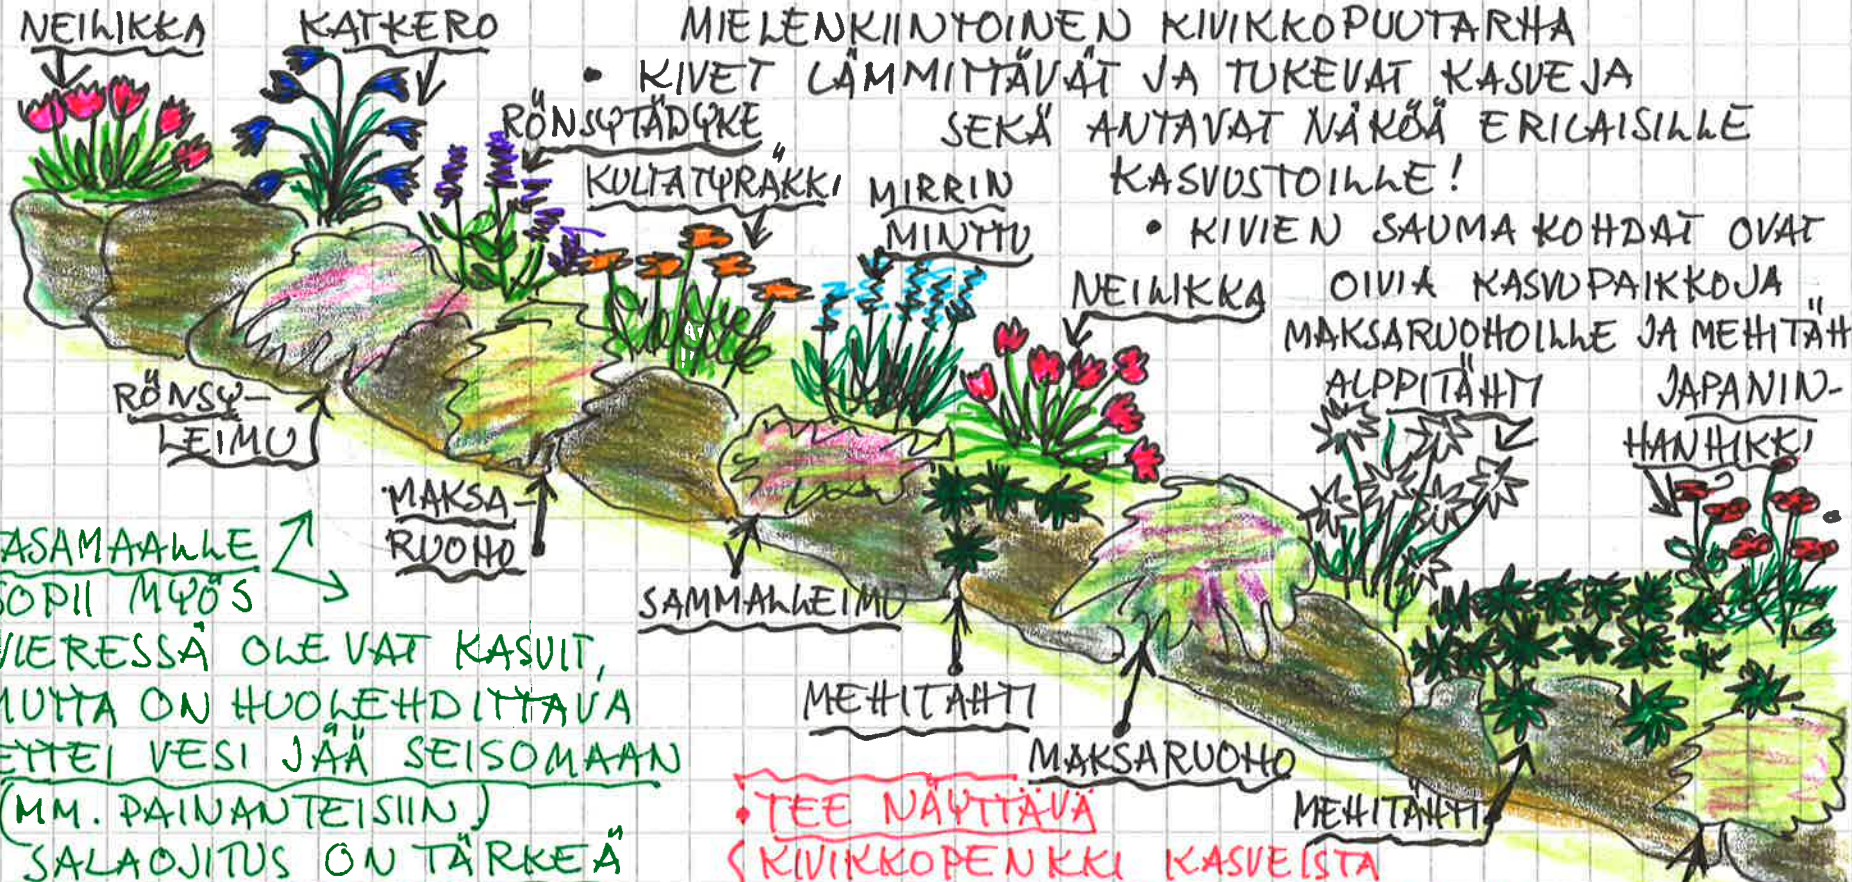 NEILIKKA
KATKERO
MIELENKIINTOINEN KIVIKKOPUUTARHA
• KIVET LÄMMITTÄVÄT JA TUKEVAT KASVEJA
SEKÄ ANTAVAT NÄKÖÄ ERILAISILLE
KASVUSTOILLE!
RÖNSYTÄDYKE
KULTATYRÄKKI
MIRRIN
MINTTU
• KIVIEN SAUMAKOHDAT OVAT
OIVIA KASVUPAIKKOJA
MAKSARUOHOILLE JA MEHITÄH
NEILIKKA
ALPPITÄHTI
JAPANIN-
HANHIKKI
RÖNSY-
LEIMU
MAKSA-
RUOHO
SAMMALLEIMU
MEHITÄHTI
MAKSARUOHO
MEHITÄHTI
TASAMAALLE
SOPII MYÖS
VIERESSÄ OLEVAT KASVIT,
MUTTA ON HUOLEHDITTAVA
ETTEI VESI JÄÄ SEISOMAAN
(MM. PAINANTEISIIN)
SALAOJITUS ON TÄRKEÄ
• TEE NÄYTTÄVÄ
KIVIKKOPENKKI KASVEISTA